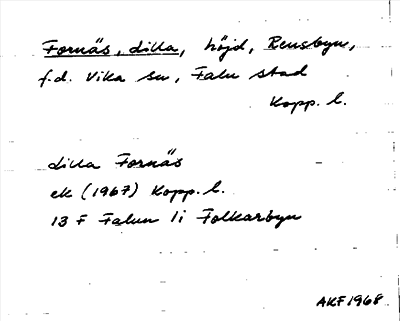 Fornäs, Lilla, höjd, Rensbyn,
f.d. Vika sn, Falu stad
Kopp. l.
Lilla Fornäs
ek (1967) Kopp. l.
13 F Falun 1i Folkarbyn
AKF 1968